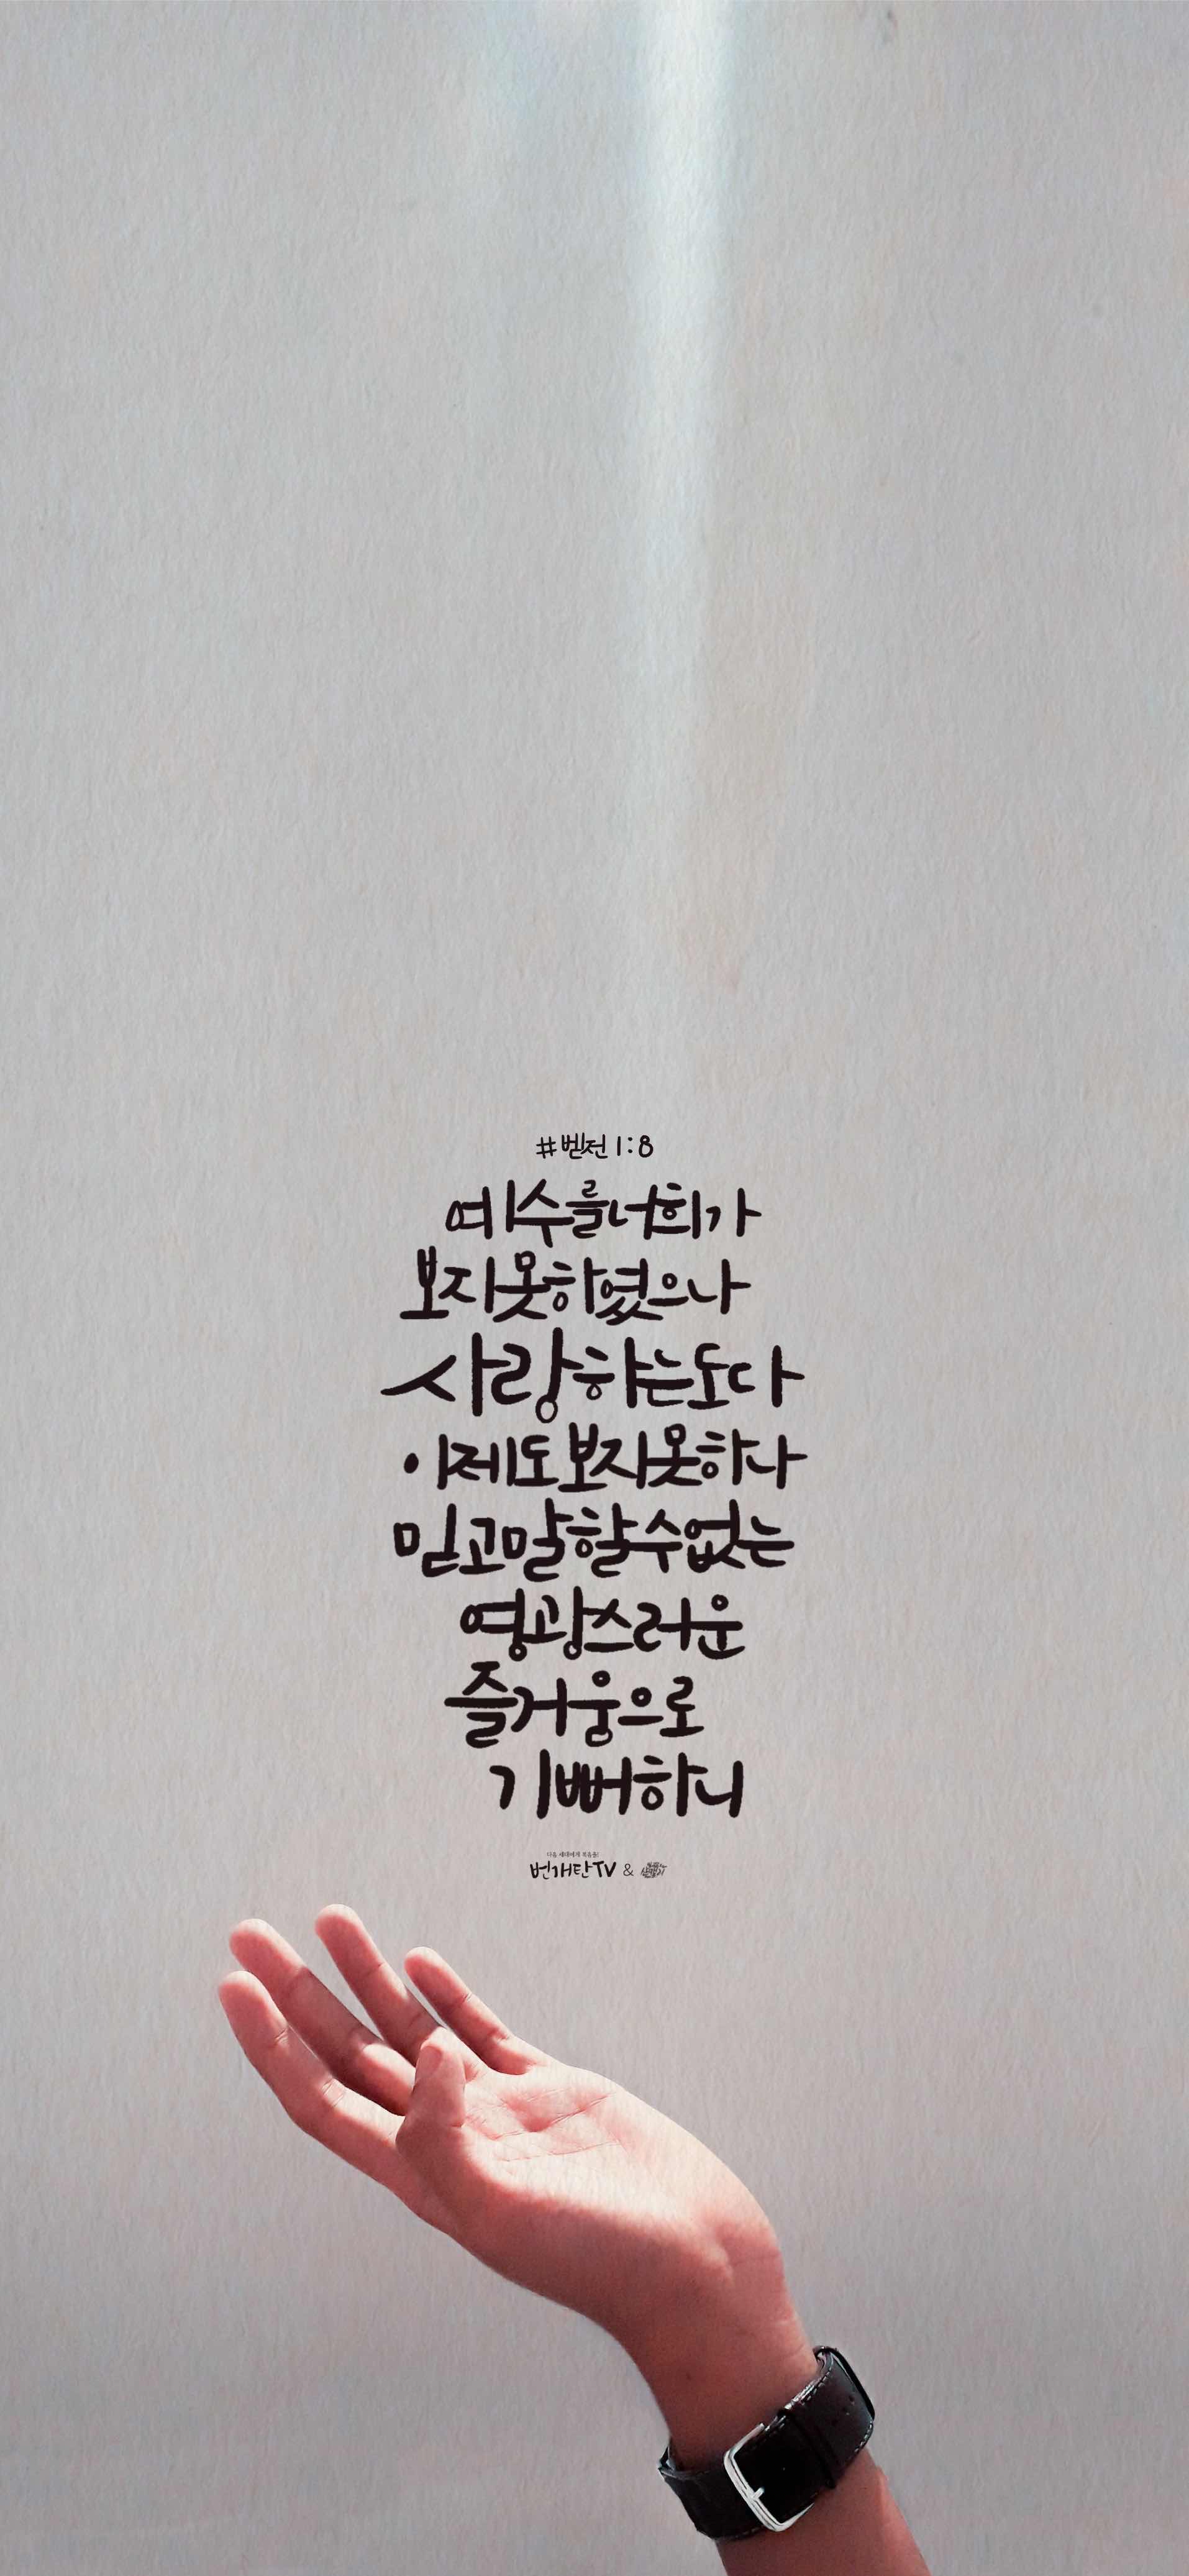 #벧전 1:8
예수를너희가
보지못하였으나
사랑하는도다
이제도보지못하나
믿고말할수없는
영광스러운
즐거움으로
기뻐하니
다음 세대에게 복음을!
번개탄TV &